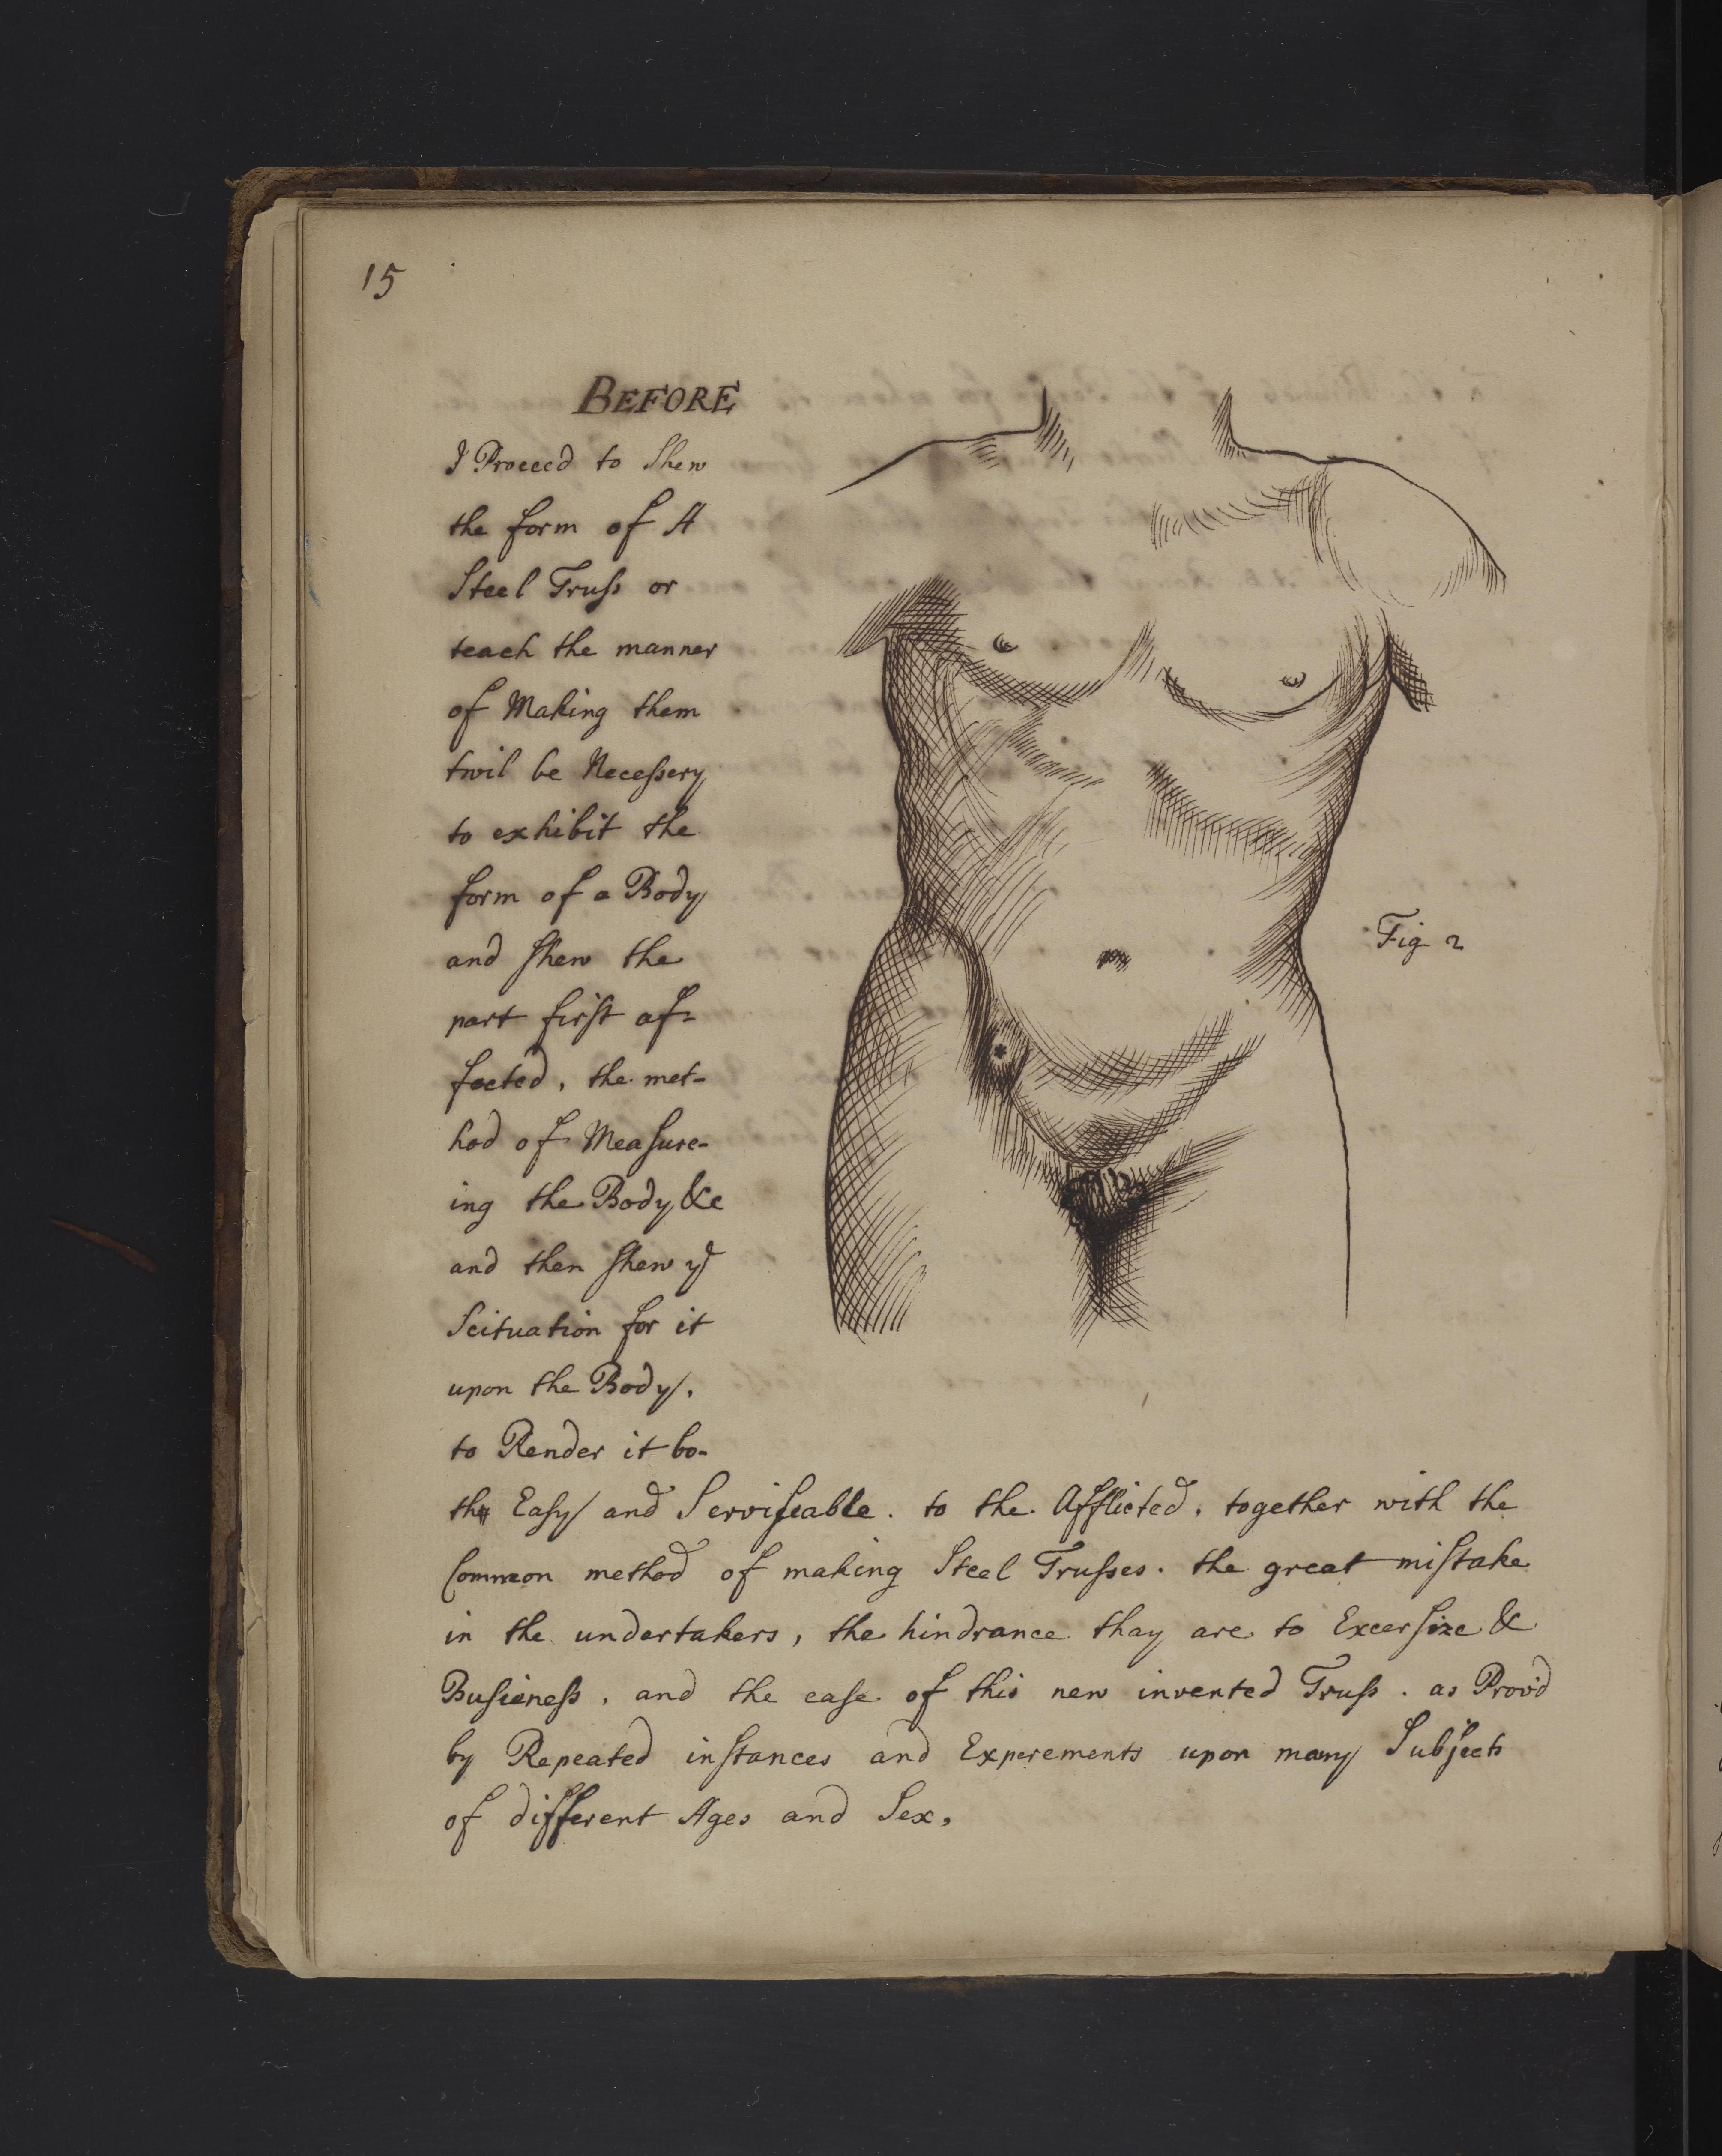 15
BEFORE
I Proceed to Shew
the form of A
Steel Truſs or
teach the manner
of Making them
twil be Neceſsery
to exhibit the
form of a Body
and ſhew the
part firſt af-
fected, the met-
hod of Meaſure-
ing the Body &c
and then ſhew yᵉ
Scituation for it
upon the Body.
to Render it bo-
th Eaſy and Serviſeable. to the Afflicted, together with the
Common method of making Steel Truſses. the great miſtake
in the undertakers, the hindrance thay are to Excerſize &
Buſieneſs, and the eaſe of this new invented Truſs. as Prov'd
by Repeated inſtances and Experements upon many Subjects
of different Ages and Sex,
Fig 2